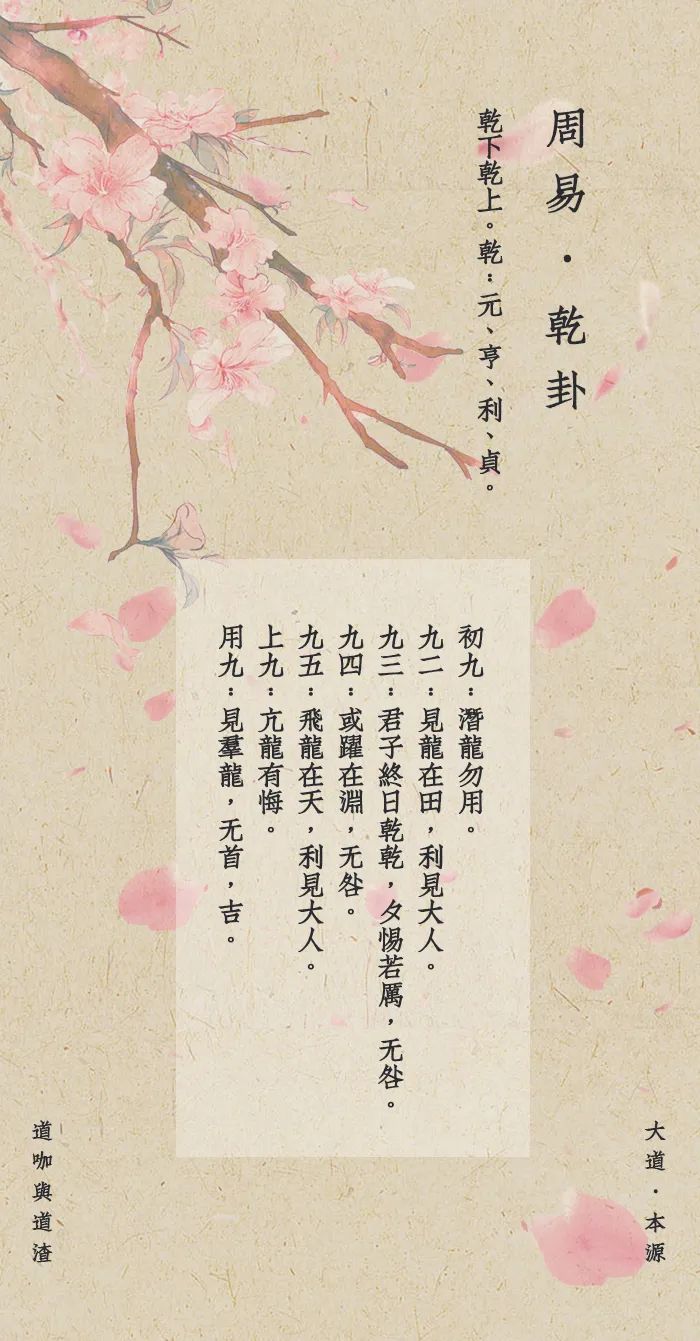 周易·乾卦
乾下乾上。乾：元、亨、利、貞。
初九：潛龍勿用。
九二：見龍在田，利見大人。
九三：君子終日乾乾，夕惕若厲，无咎。
九四：或躍在淵，无咎。
九五：飛龍在天，利見大人。
上九：亢龍有悔。
用九：見羣龍，无首，吉。
大道·本源
道咖與道渣